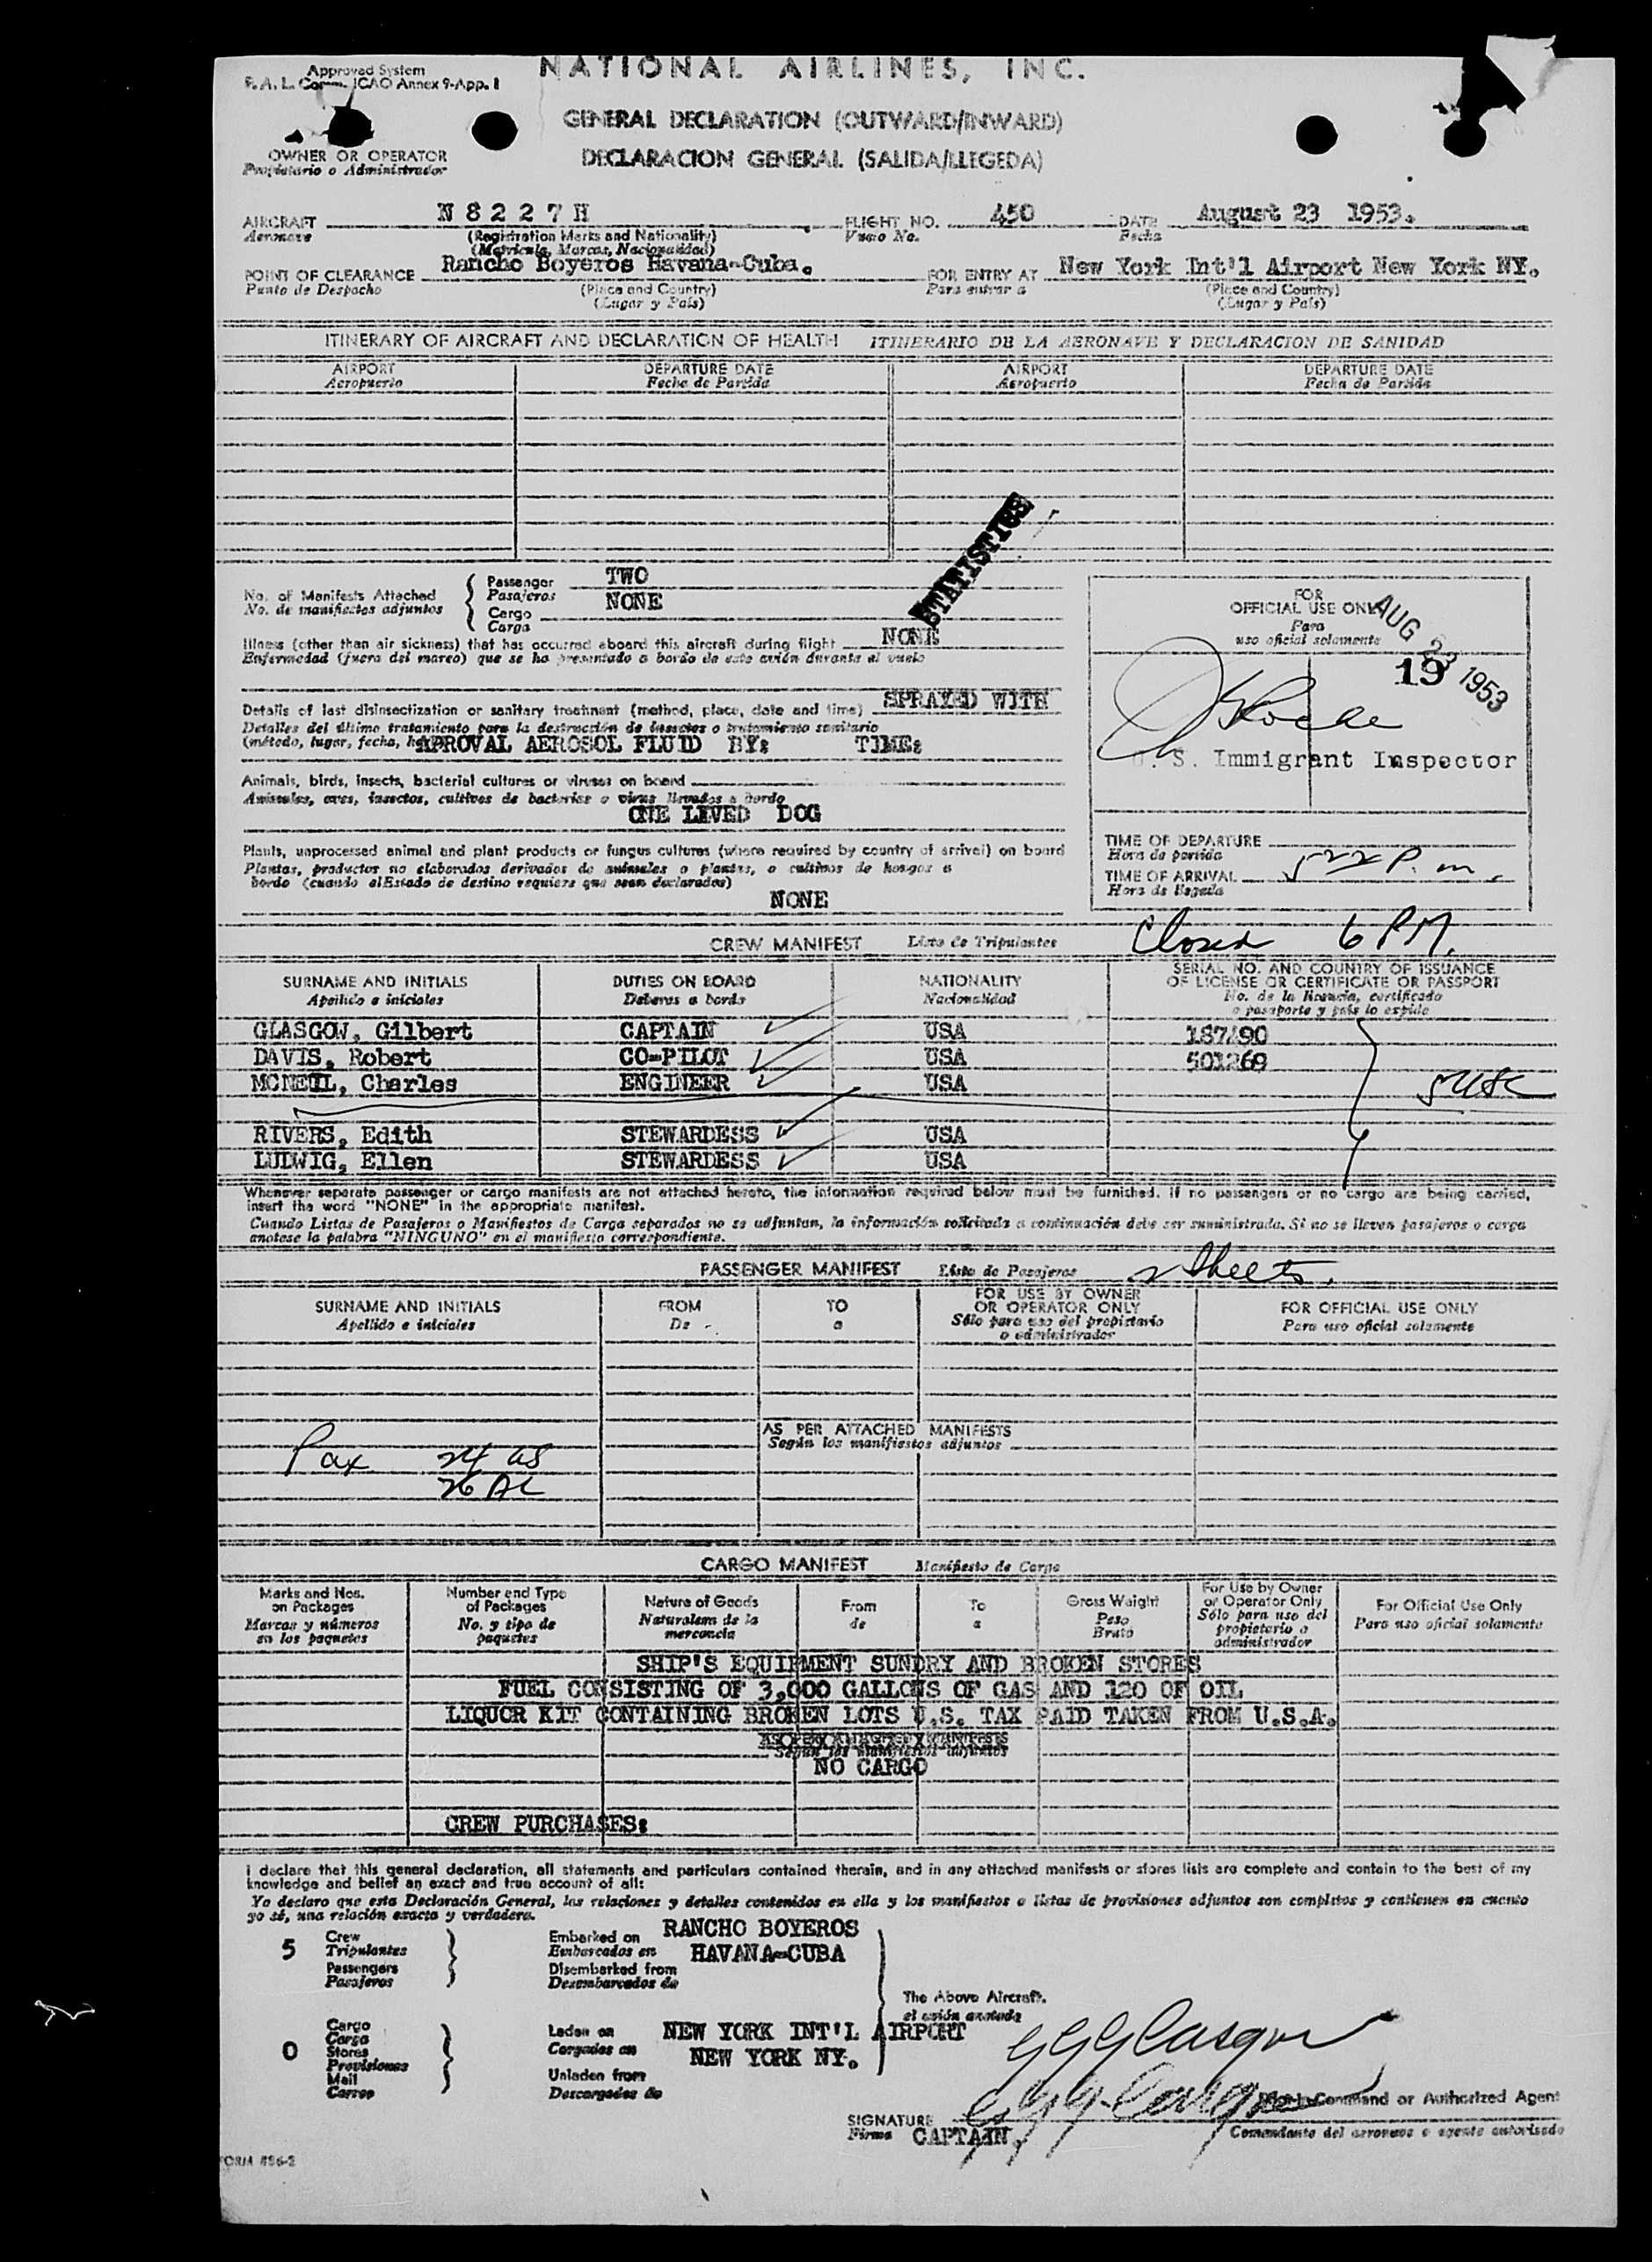 Approved System
F. A. L. Comm. ICAO Annex 9-App. 1
NATIONAL AIRLINES, INC.
GENERAL DECLARATION (OUTWARD/INWARD)
DECLARACION GENERAL (SALIDA/LLEGEDA)
OWNER OR OPERATOR
Propietario o Administrador
AIRCRAFT N 8 2 2 7 H FLIGHT NO. 450 DATE August 23 1953.
Aeronave (Registration Marks and Nationality) Vuelo No. Fecha
(Matricula, Marcas, Nacionalidad)
POINT OF CLEARANCE Rancho Boyeros Havana-Cuba. FOR ENTRY AT New York Int'l Airport New York NY.
Punto de Despacho (Place and Country) Para entrar a (Place and Country)
(Lugar y País) (Lugar y País)
ITINERARY OF AIRCRAFT AND DECLARATION OF HEALTH ITINERARIO DE LA AERONAVE Y DECLARACION DE SANIDAD
AIRPORT DEPARTURE DATE AIRPORT DEPARTURE DATE
Aeropuerto Fecha de Partida Aeropuerto Fecha de Partida
STATISTICS
No. of Manifests Attached
No. de manifiestos adjuntos
Passenger TWO
Pasajeros
Cargo NONE
Carga
Illness (other than air sickness) that has occurred aboard this aircraft during flight NONE
Enfermedad (fuera del mareo) que se ha presentado a bordo de este avión durante el vuelo
Details of last disinsectization or sanitary treatment (method, place, date and time) SPRAYED WITH
Detalles del último tratamiento para la destrucción de insectos o tratamiento sanitario
(método, lugar, fecha, APROVAL AEROSOL FLUID BY: TIME:
Animals, birds, insects, bacterial cultures or viruses on board
Animales, aves, insectos, cultivos de bacterias o virus llevados a bordo
ONE LIVED DOG
Plants, unprocessed animal and plant products or fungus cultures (where required by country of arrival) on board
Plantas, productos no elaborados derivados de animales o plantas, o cultivos de hongos a
bordo (cuando el Estado de destino requiera que sean declarados)
NONE
FOR
OFFICIAL USE ONLY
Para
uso oficial solamente
AUG 23 1953
19
U. S. Immigrant Inspector
TIME OF DEPARTURE
Hora de partida
TIME OF ARRIVAL 522 P. m.
Hora de llegada
Closed 6 PM.
CREW MANIFEST Lista de Tripulantes
SURNAME AND INITIALS DUTIES ON BOARD NATIONALITY SERIAL NO. AND COUNTRY OF ISSUANCE
OF LICENSE OR CERTIFICATE OR PASSPORT
Apellido e iniciales Deberes a bordo Nacionalidad No. de la licencia, certificado
o pasaporte y país lo expide
GLASGOW, Gilbert CAPTAIN USA 187490
DAVIS, Robert CO-PILOT USA 501269
MCNEIL, Charles ENGINEER USA
5 USC
RIVERS, Edith STEWARDESS USA
LUDWIG, Ellen STEWARDESS USA
Whenever separate passenger or cargo manifests are not attached hereto, the information required below must be furnished. If no passengers or no cargo are being carried,
insert the word "NONE" in the appropriate manifest.
Cuando Listas de Pasajeros o Manifiestos de Carga separados no se adjuntan, la información solicitada a continuación debe ser suministrada. Si no se lleven pasajeros o carga
anotese la palabra "NINGUNO" en el manifiesto correspondiente.
PASSENGER MANIFEST Lista de Pasajeros 2 sheets.
SURNAME AND INITIALS FROM TO FOR USE BY OWNER
OR OPERATOR ONLY FOR OFFICIAL USE ONLY
Apellido e iniciales De a Sólo para uso del propietario
o administrador Para uso oficial solamente
AS PER ATTACHED MANIFESTS
Según los manifiestos adjuntos
Pax 24 US
26 AL
CARGO MANIFEST Manifiesto de Carga
Marks and Nos.
on Packages
Marcas y números
en los paquetes
Number and Type
of Packages
No. y tipo de
paquetes
Nature of Goods
Naturaleza de la
mercancia
From
de
To
a
Gross Weight
Peso
Bruto
For Use by Owner
or Operator Only
Sólo para uso del
propietario o
administrador
For Official Use Only
Para uso oficial solamente
SHIP'S EQUIPMENT SUNDRY AND BROKEN STORES
FUEL CONSISTING OF 3,000 GALLONS OF GAS AND 120 OF OIL
LIQUOR KIT CONTAINING BROKEN LOTS U.S. TAX PAID TAKEN FROM U.S.A.
AS PER ATTACHED MANIFESTS
Según los manifiestos adjuntos
NO CARGO
CREW PURCHASES:
I declare that this general declaration, all statements and particulars contained therein, and in any attached manifests or stores lists are complete and contain to the best of my
knowledge and belief an exact and true account of all:
Yo declaro que esta Declaración General, las relaciones y detalles contenidos en ella y los manifiestos o listas de provisiones adjuntos son completos y contienen en cuento
yo sé, una relación exacta y verdadera.
5 Crew
Tripulantes
Passengers
Pasajeros
Embarked on RANCHO BOYEROS
Embarcados en HAVANA-CUBA
Disembarked from
Desembarcados de
The Above Aircraft.
el avión anotado
0 Cargo
Carga
Stores
Provisiones
Mail
Correo
Laden on NEW YORK INT'L AIRPORT
Cargados en NEW YORK NY.
Unladen from
Descargados de
GGGlasgow
GGGlasgow
Pilot in Command or Authorized Agent
SIGNATURE
Firma CAPTAIN,
Comandante del aeronave o agente autorizado
FORM 886-2